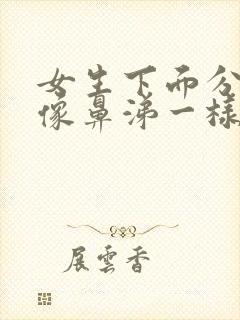 女生下而分
像鼻涕一樣
展雲香